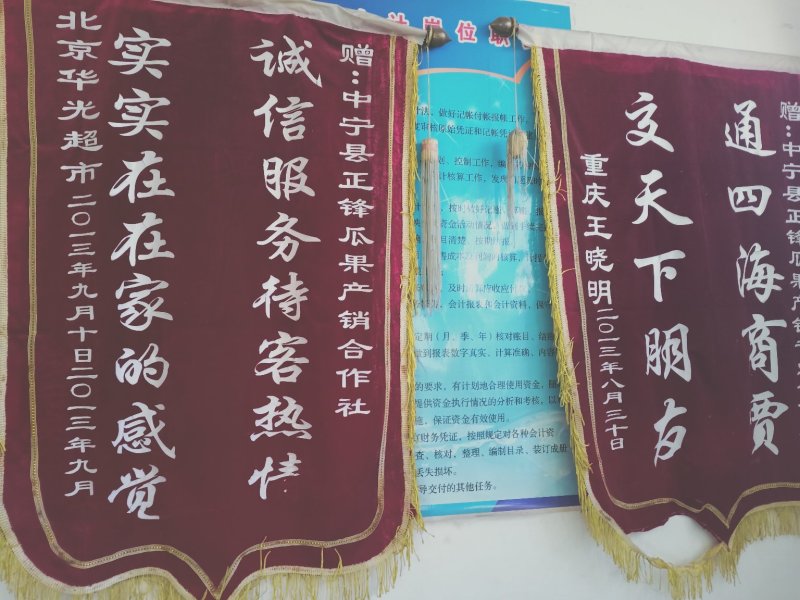 赠：中宁县正锋瓜果产销合作社
诚信服务待客热情
实实在在家的感觉
北京华光超市二〇一三年九月十日二〇一三年九月
岗位职
做好记帐付帐报帐工作，
审核原始凭证和记帐凭
控制工作，
核算工作，
资金活动情况
目清楚、按期
会计报表和会计资料，保
定期（月、季、年）核对账目、结
做到报表数字真实、计算准确、内容
的要求，有计划地合理使用资金，
提供资金执行情况的分析和考核，以
施、保证资金有效使用。
财务凭证，按照规定对各种会计资
查、核对，整理、编制目录、装订成册
丢失损坏。
导交付的其他任务。
赠：中宁县正锋瓜果产销
通四海商贾
交天下朋友
重庆王晓明二〇一三年八月三十日